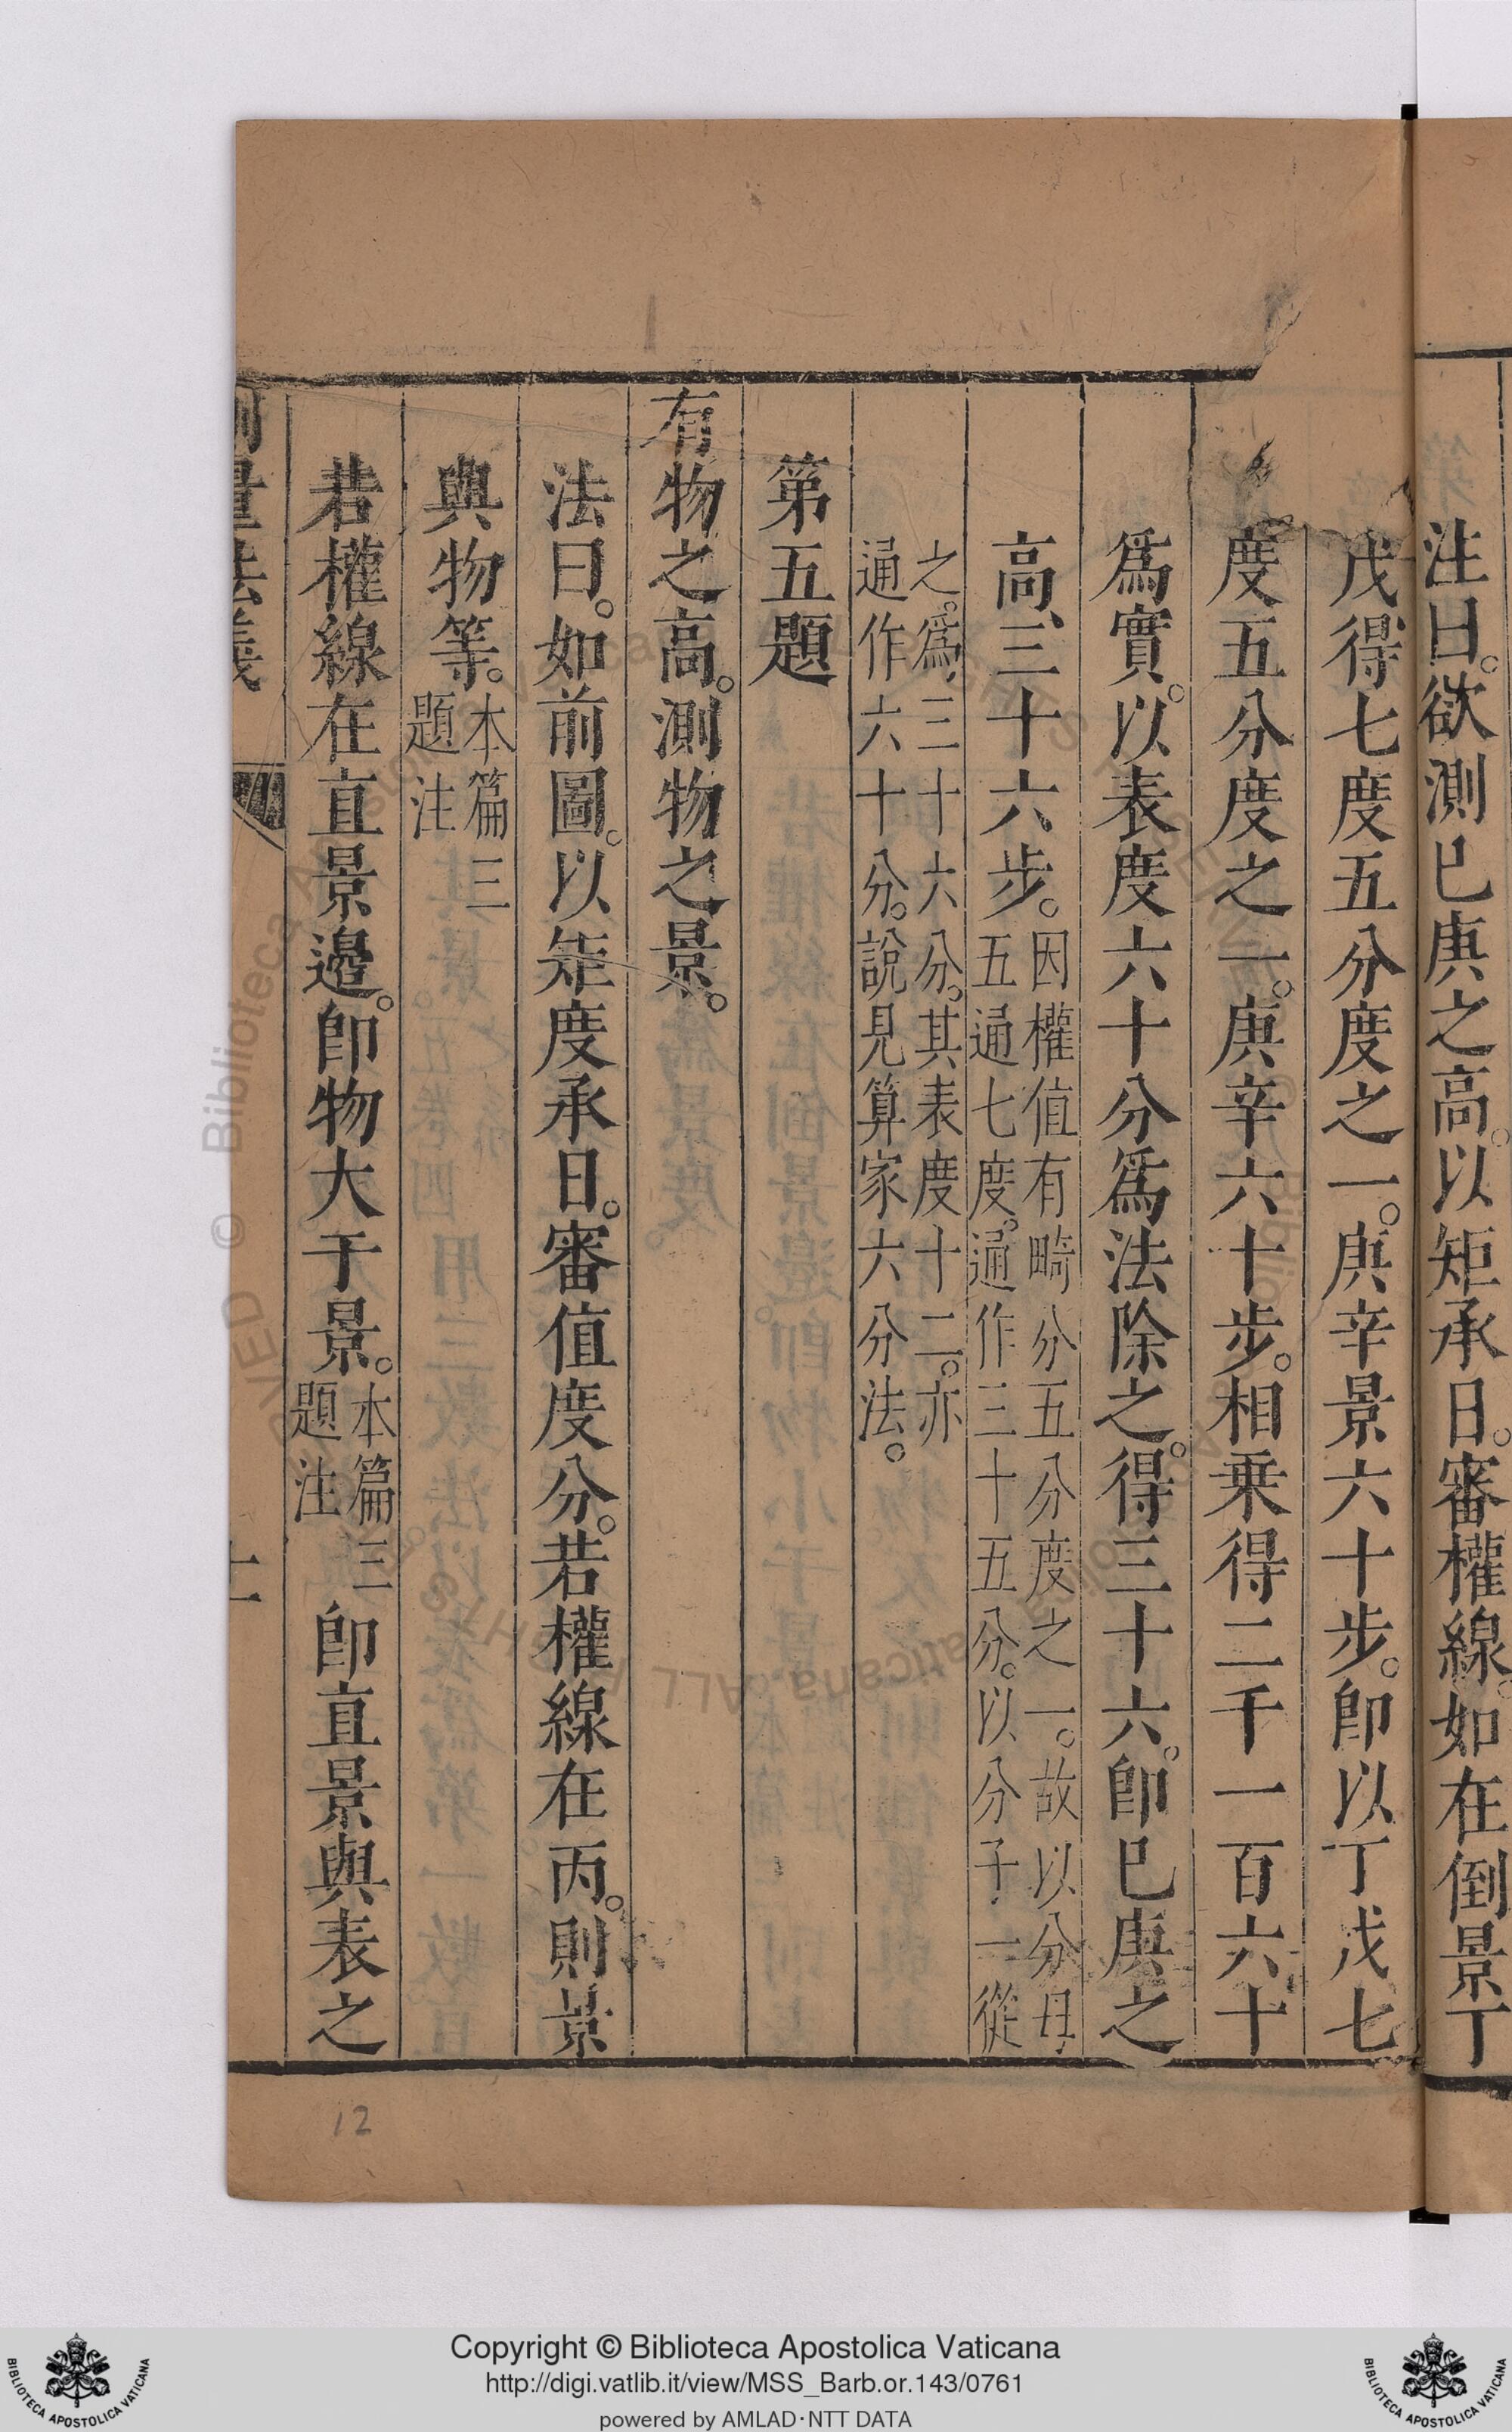 注曰。欲測巳庚之高。以矩承日。審權線。如在倒景丁
戊得七度五分度之一。庚辛景六十步。卽以丁戊七
度五分度之一。庚辛六十步。相乗得二千一百六十
爲實。以表度六十分爲法除之。得三十六。卽巳庚之
高、三十六步。因權值有畸分五分度之一。故以分母
五通七度。通作三十五分。以分子一從
之。爲、三十六分。其表度十二。亦
通作六十分。說見算家六分法。
第五題
有物之高。測物之景。
法曰。如前圖。以矩度承日。審值度分。若權線在丙。則景
與物等。本篇三
題注
若權線在直景邉。卽物大于景。本篇三
題注 卽直景與表之
測量法義
十二
12
Copyright © Biblioteca Apostolica Vaticana
http://digi.vatlib.it/view/MSS_Barb.or.143/0761
powered by AMLAD·NTT DATA
BIBLIOTECA APOSTOLICA VATICANA
BIBLIOTECA APOSTOLICA VATICANA